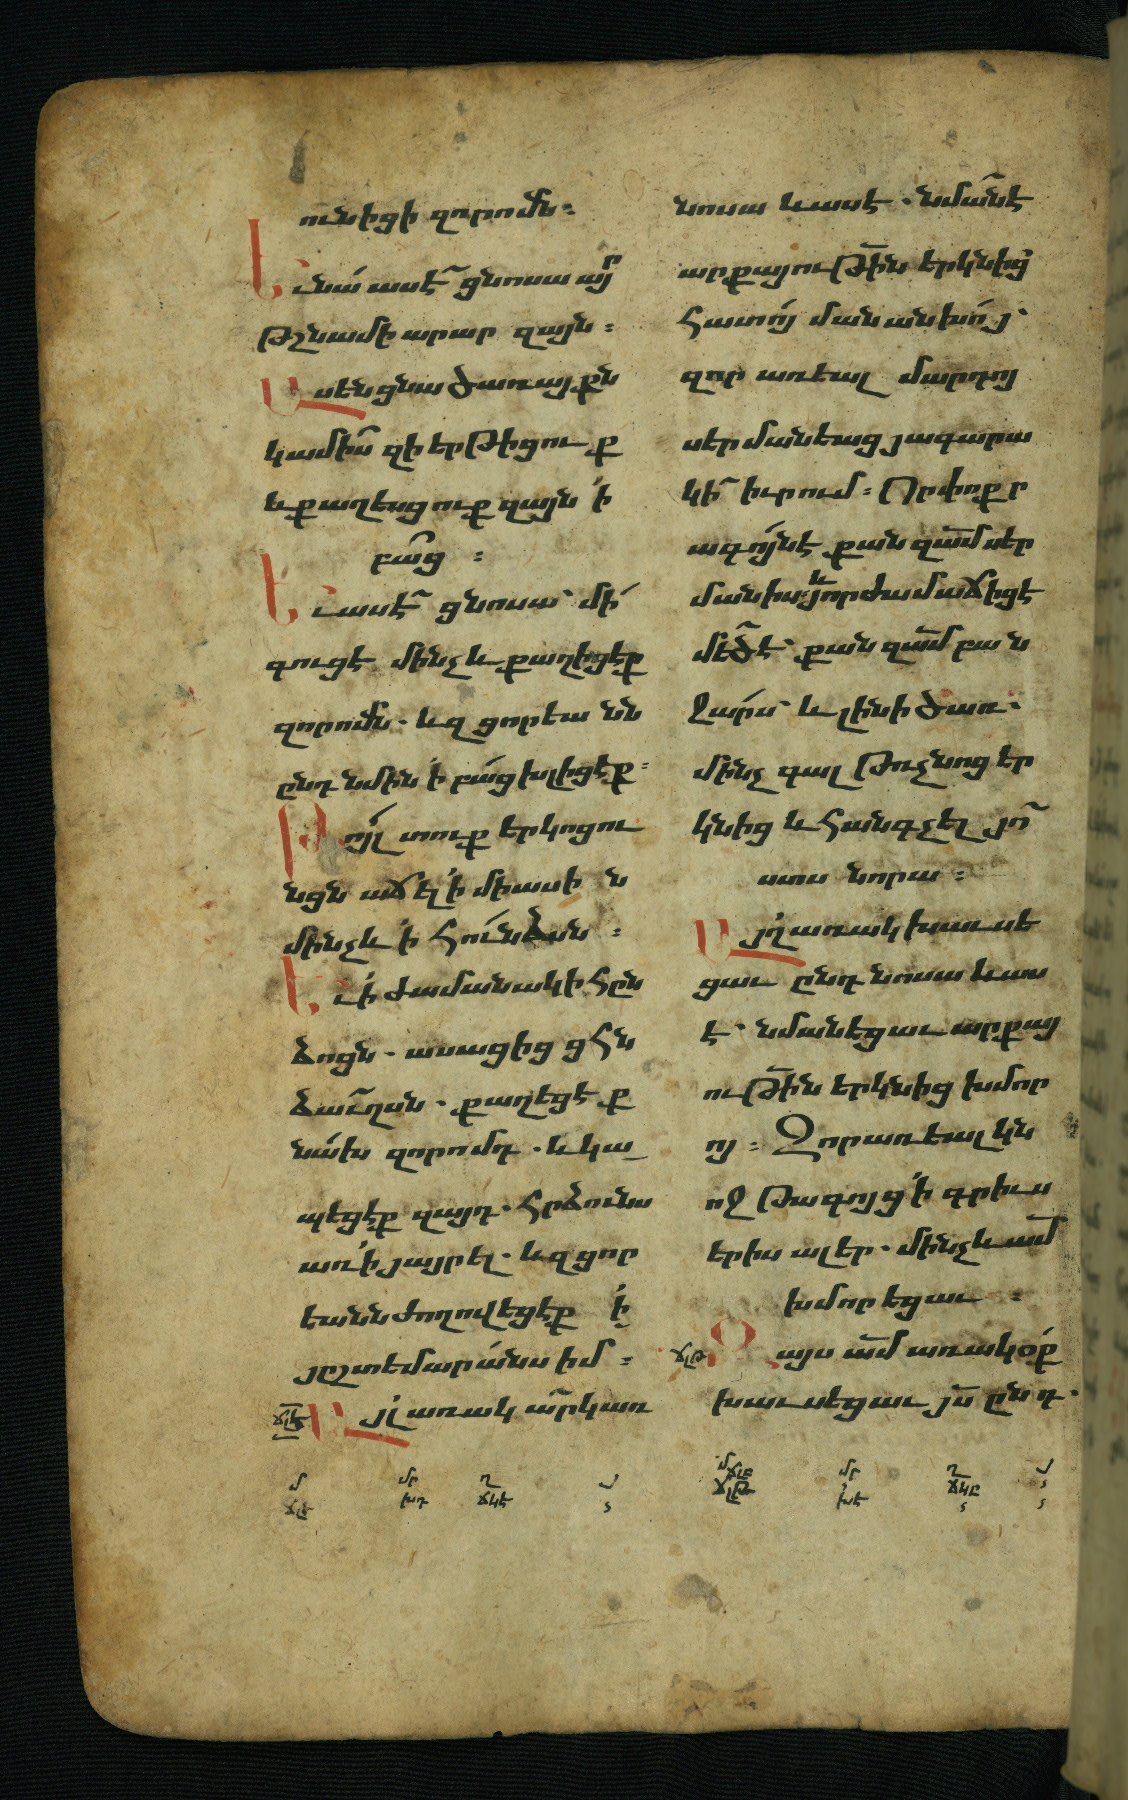 ունիցի զորոմն։
Եւ նա՛ ասէ՛ ցնոսա այր
թշնամի արար զայն։
Ասեն ցնա ծառայքն
կամիս զի երթիցուք
և քաղեսցուք զայն ՛ի
բաց։
Եւ ասէ՛ ցնոսա՝ մի՛
գուցէ մինչև քաղիցէք
զորոմն. և զցորեանն
ընդ նմին ՛ի բա՛ց խլիցէք։
Թո՛յլ տուք երկոցու
նցն աճել ՛ի միասին
մինչև ՛ի հունձսն։
Եւ ՛ի ժամանակի հըն
ձոցն. ասացից ցհն
ձաւղսն. քաղեցէք
նա՛խ զորոմդ. և կա
պեցէք զայդ. հրձունս
առ ՛ի յայրել. և զցոր
եանն ժողովեցէք ՛ի
յըշտեմարա՛նս իմ։
ճլէ Այլ առակ արկառ
նոսա և ասէ. նման է
արքայութին երկնից
հատո՛յ մանանխո՛յ՝
զոր առեալ մարդոյ
սերմանեաց յագարա
կի՛ իւրում։ Որ փոքր
ագո՛յն է քան զամ սեր
մանիս։ և յորժամ աճիցէ
մեծ է՝ քան զամ բան
ջա՛րս՝ և լինի ծառ.
մինչ գալ թռչնոց եր
կնից և հանգչել յո՛
ստս նորա։
Այլ առակ խաւսե
ցաւ ընդ նոսա և աս
է. նմանեցաւ արքայ
ութին երկնից խմոր
ոյ։ Զոր առեալ կն
ոջ թագոյց ՛ի գրիւս
երիս ալեր. մինչև ամ
խմորեցաւ։
ճլը Զայս ամ առակօք
խաւսեցաւ յս ընդ.